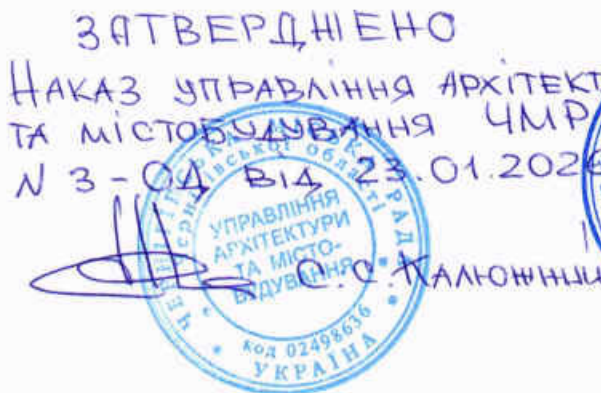 ЗАТВЕРДЖЕНО
НАКАЗ УПРАВЛІННЯ АРХІТЕКТ
ТА МІСТОБУДУВАННЯ ЧМР
N 3-ОД ВІД 23.01.2026
С.С. КАЛЮЖНИЙ
УПРАВЛІННЯ
АРХІТЕКТУРИ
ТА МІСТО-
БУДУВАННЯ
код 02498636
УКРАЇНА